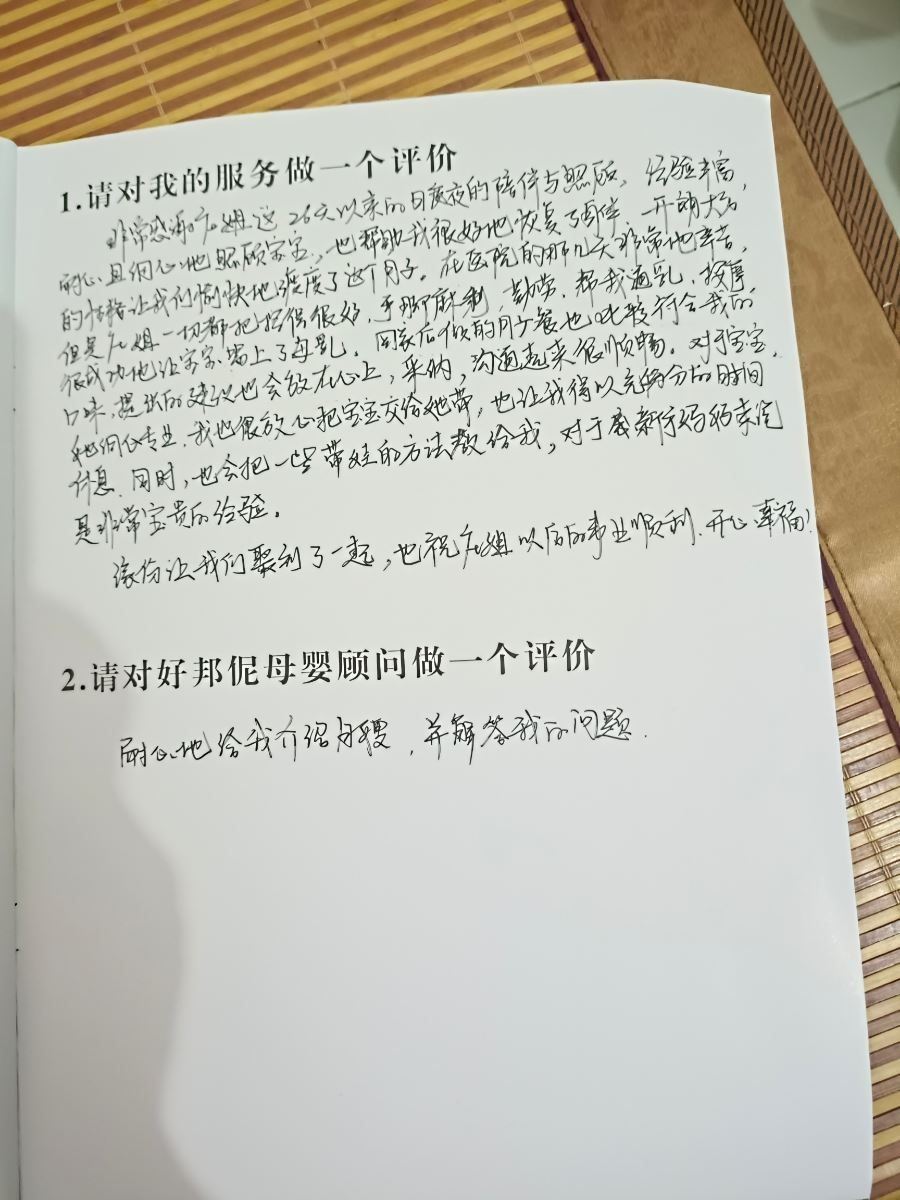 1.请对我的服务做一个评价
非常感谢 姐这26天以来的日夜的陪伴与照顾。经验丰富,
耐心且细心地照顾宝宝,也帮助我很好地恢复了身体,开朗大方
的性格让我们愉快地度了这个月子。在医院的那几天非常地辛苦,
但是 姐一切都把控得很好,手脚麻利,勤劳,帮我通乳,按摩,
很成功地让宝宝喝上了母乳。回家后做的月子餐也比较符合我的
口味,提出的建议也会放在心上,采纳,沟通起来很顺畅。对于宝宝,
她细心专业,我也很放心把宝宝交给她带,也让我得以充分的时间
休息。同时,也会把一些带娃的方法教给我,对于我新手妈妈来说
是非常宝贵的经验。
缘份让我们聚到了一起,也祝 姐以后的事业顺利,开心幸福!
2.请对好邦伲母婴顾问做一个评价
耐心地给我介绍月嫂,并解答我的问题.